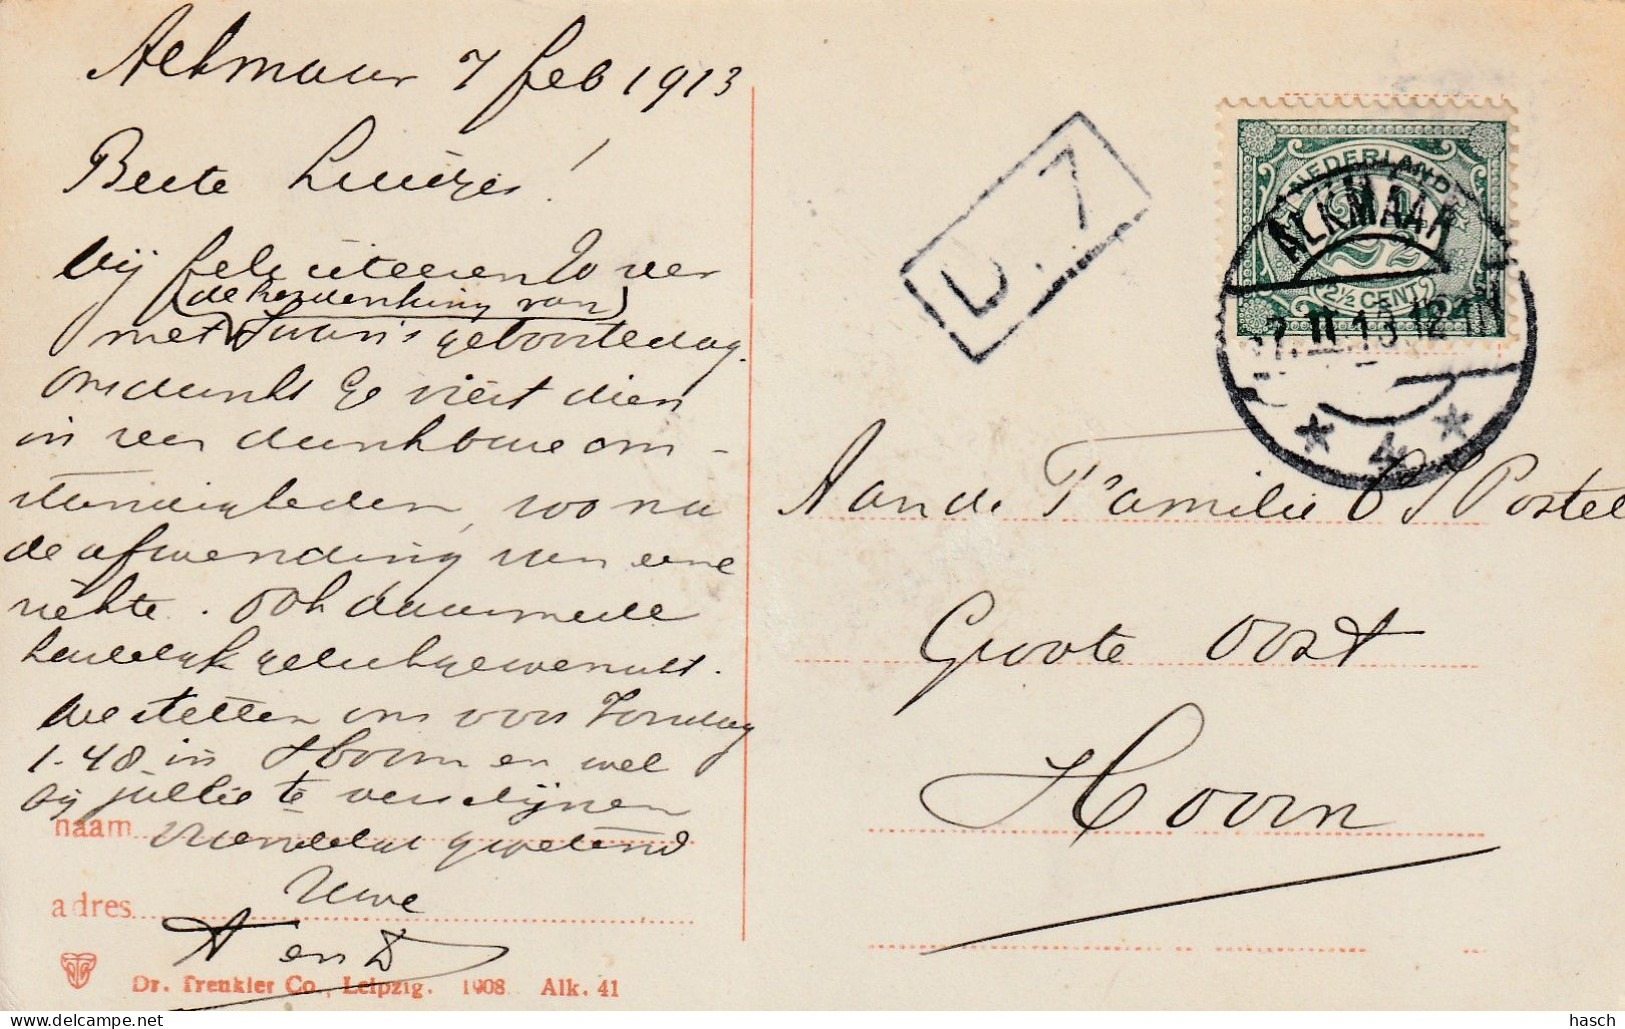 Alkmaar 7 feb 1913
Beste
Wij feliciteeren U zeer
(de herdenking van)
met geboortedag.
Ons dunkt ge viert dien
in zeer dankbare om-
standigheden, zoo na
de afwending van eene
ziekte. Ook daarmede
hartelijk gelukgewenscht.
We stellen ons voor Zondag
1.48 in Hoorn en wel
bij jullie te verschijnen
naam Vriendelijk gegroetend
adres Uwe
A en D
Dr. Trenkler Co., Leipzig. 1908 Alk. 41
D. 7
NEDERLAND
2½
2½ CENT
ALKMAAR
7.II.13.12-1N
* 4 *
Aan de Familie Postel
Groote Oost
Hoorn
hasch
delcampe.net